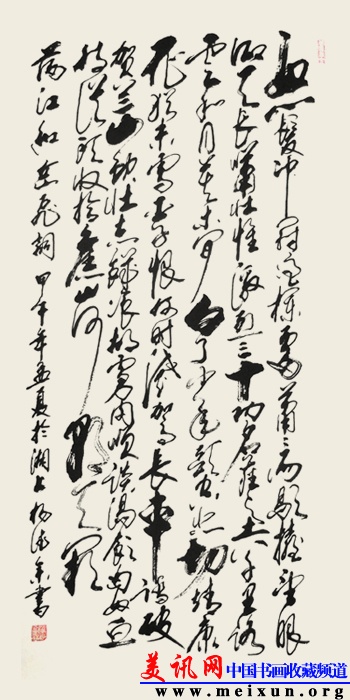 怒髮冲冠凭栏處萧萧雨歇擡望眼
仰天长啸壮怀激烈三十功名尘与土八千里路
雲和月莫等闲白了少年頭空悲切靖康
耻猶未雪臣子恨何时滅驾长車踏破
贺兰山缺壮志饥餐胡虏肉笑談渴飲匈奴血
待從頭收拾舊山河朝天阙
满江红岳飞詞 甲午年孟夏於湘上 楊書
美讯网 中国书画收藏频道
www.meixun.org